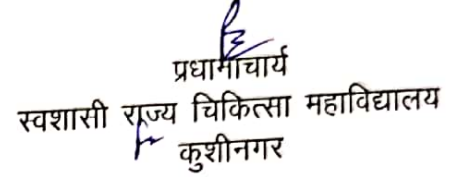 प्रधानाचार्य
स्वशासी राज्य चिकित्सा महाविद्यालय
कुशीनगर